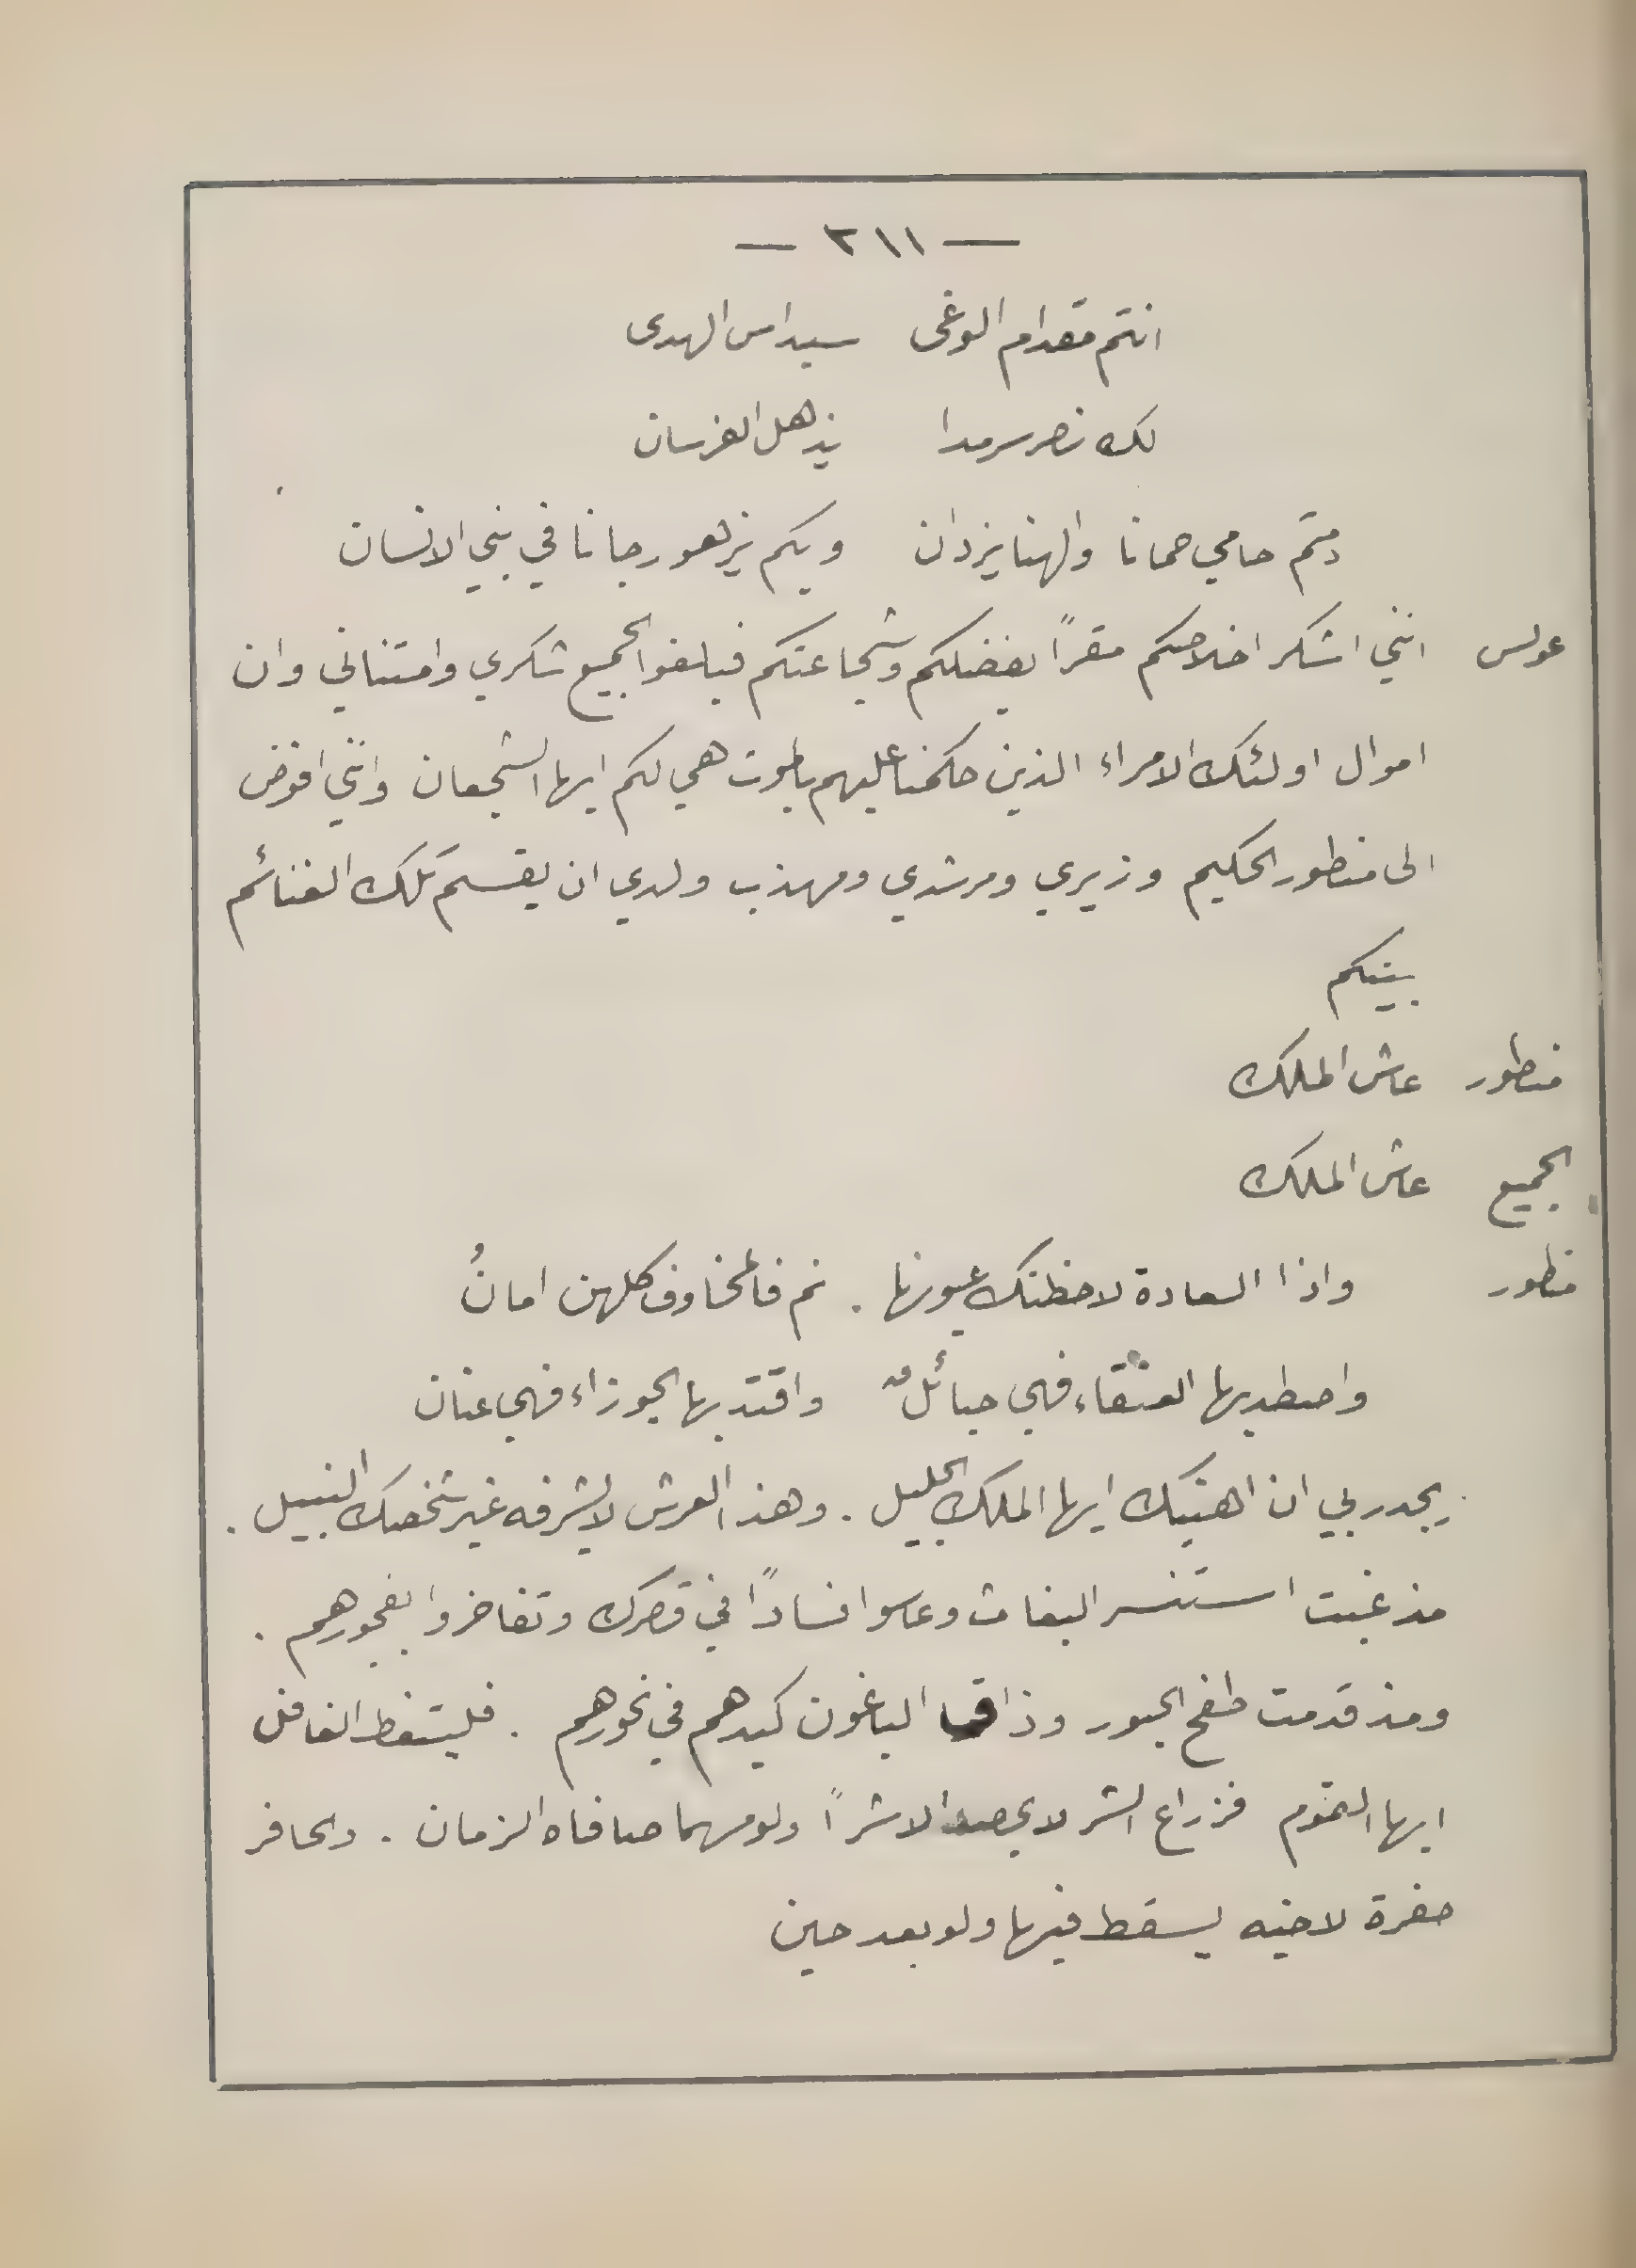 — ٢١١ —
انتم مقدام الوغى سيد اس الهدى
لك نصر سرمدا يذهل الفرسان
دمتم حامي حمانا والهنا يزدان وبكم يزهو رجانا في بني الانسان
عولس انني اشكر اخلاصكم مقرًا بفضلكم وشجاعتكم فبلغوا الجميع شكري وامتناني وان
اموال اولئك الامراء الذين حكمنا عليهم بالموت هي لكم ايها الشجعان وانني افوض
الى منطور الحكيم وزيري ومرشدي ومهذب ولدي ان يقسم تلك الغنائم
بينكم
منطور عاش الملك
الجميع عاش الملك
منطور واذا السعادة لاحظتك عيونها . نم فالمخاوف كلهن امانُ
واصطد بها العنقاء فهي حبائل واقتد بها الجوزاء فهي عنان
يجدر بي ان اهنيك ايها الملك الجليل . وهذا العرش لا يشرفه غير شخصك النبيل .
مذ غبت استنسر البغاث وعاسوا فسادًا في قصرك وتفاخروا بفجورهم .
ومذ قدمت طفح الحبور وذاق الباغون كيدهم في نحورهم . فليتعظ الغافل
ايها القوم فزراع الشر لا يحصد الا شرًا ولو مهما صافاه الزمان . والحافر
حفرة لاخيه يسقط فيها ولو بعد حين